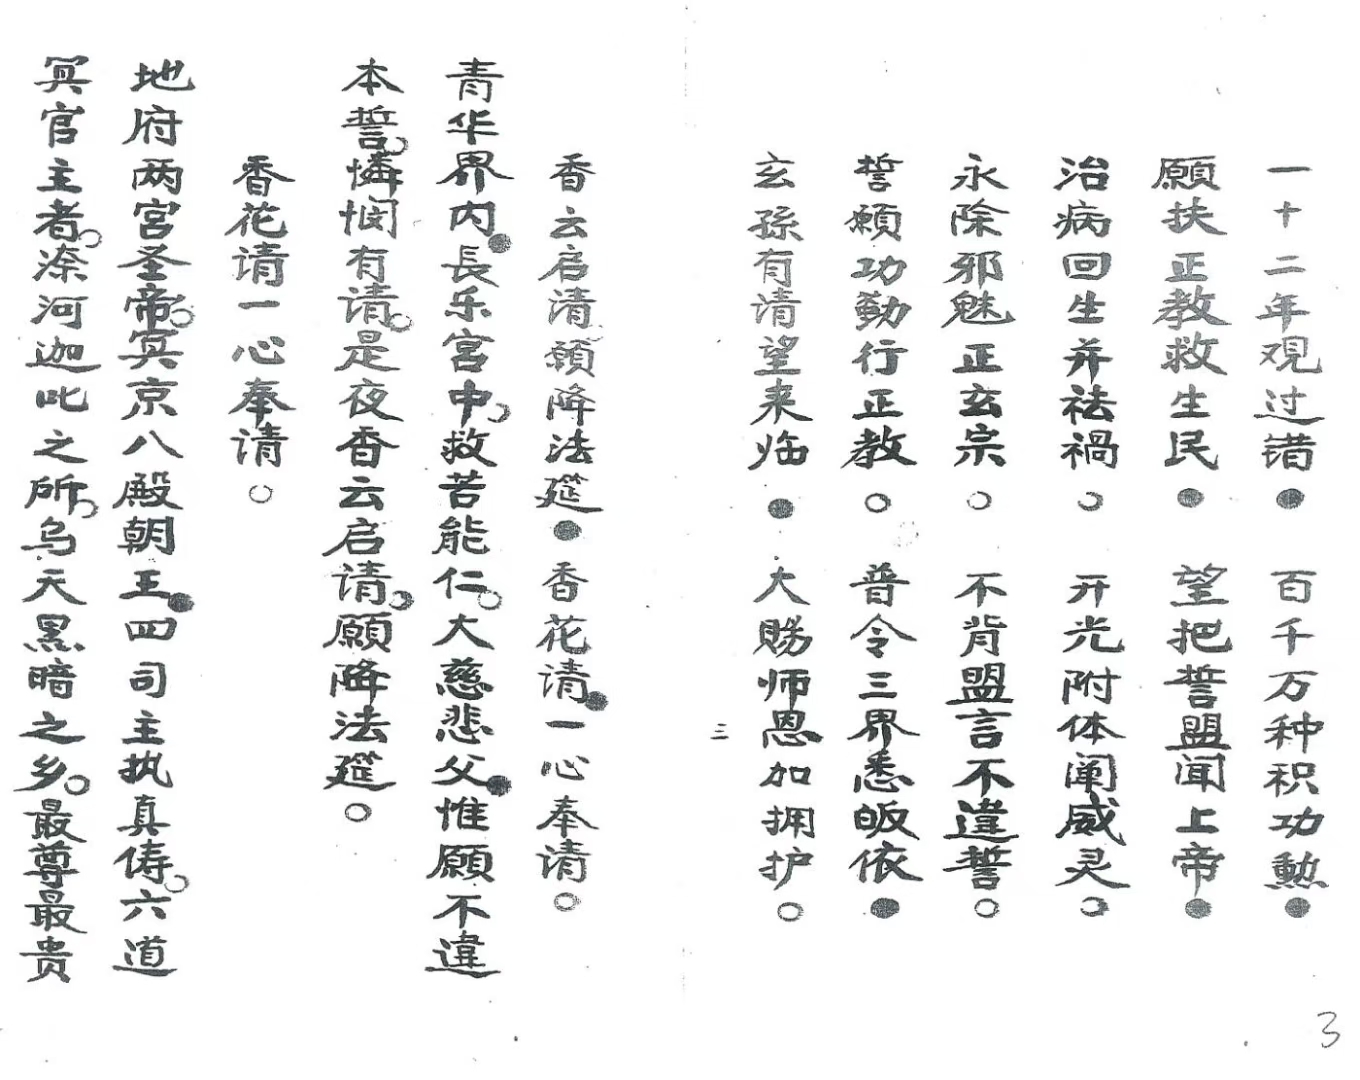 一十二年观过错●百千万种积功勲●
願扶正教救生民●望把誓盟闻上帝●
治病回生并祛禍○开光附体阐威灵○
永除邪魅正玄宗○不背盟言不違誓○
誓願功勤行正教○普令三界悉皈依●
玄孫有请望来临●大赐师恩加拥护○
三
香云启请願降法筵●香花请●一心奉请○
青华界内●長乐宫中○救苦能仁○大慈悲父●惟願不違
本誓○憐悯有请○是夜香云启请○願降法筵○
香花请一心奉请○
地府两宫圣帝○冥京八殿朝王●四司主执真俦○六道
冥官主者○漆河迦毗之所○乌天黑暗之乡○最尊最贵
3